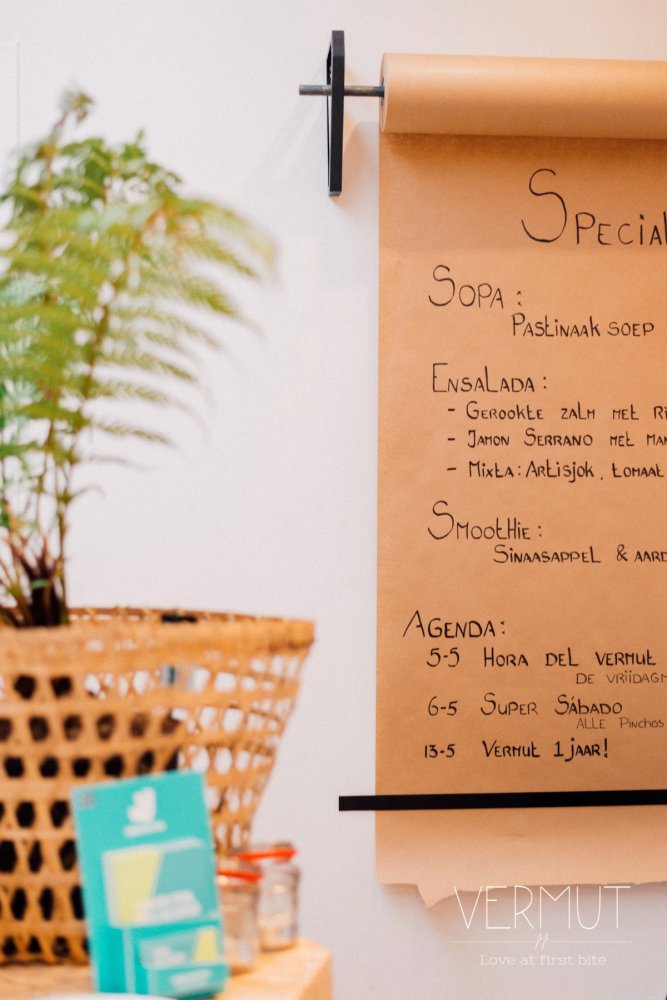 Special
SOPA:
PASTINAAK SOEP
ENSALADA:
- GEROOKTE ZALM MET RI
- JAMON SERRANO MET MAN
- MIXTA: ARTISJOK, TOMAAT
SMOOTHIE:
SINAASAPPEL & AARD
AGENDA:
5-5 HORA DEL VERMUT
DE VRIJDAGM
6-5 SUPER SÁBADO
ALLE PINCHOS
13-5 VERMUT 1 JAAR!
VERMUT
Love at first bite